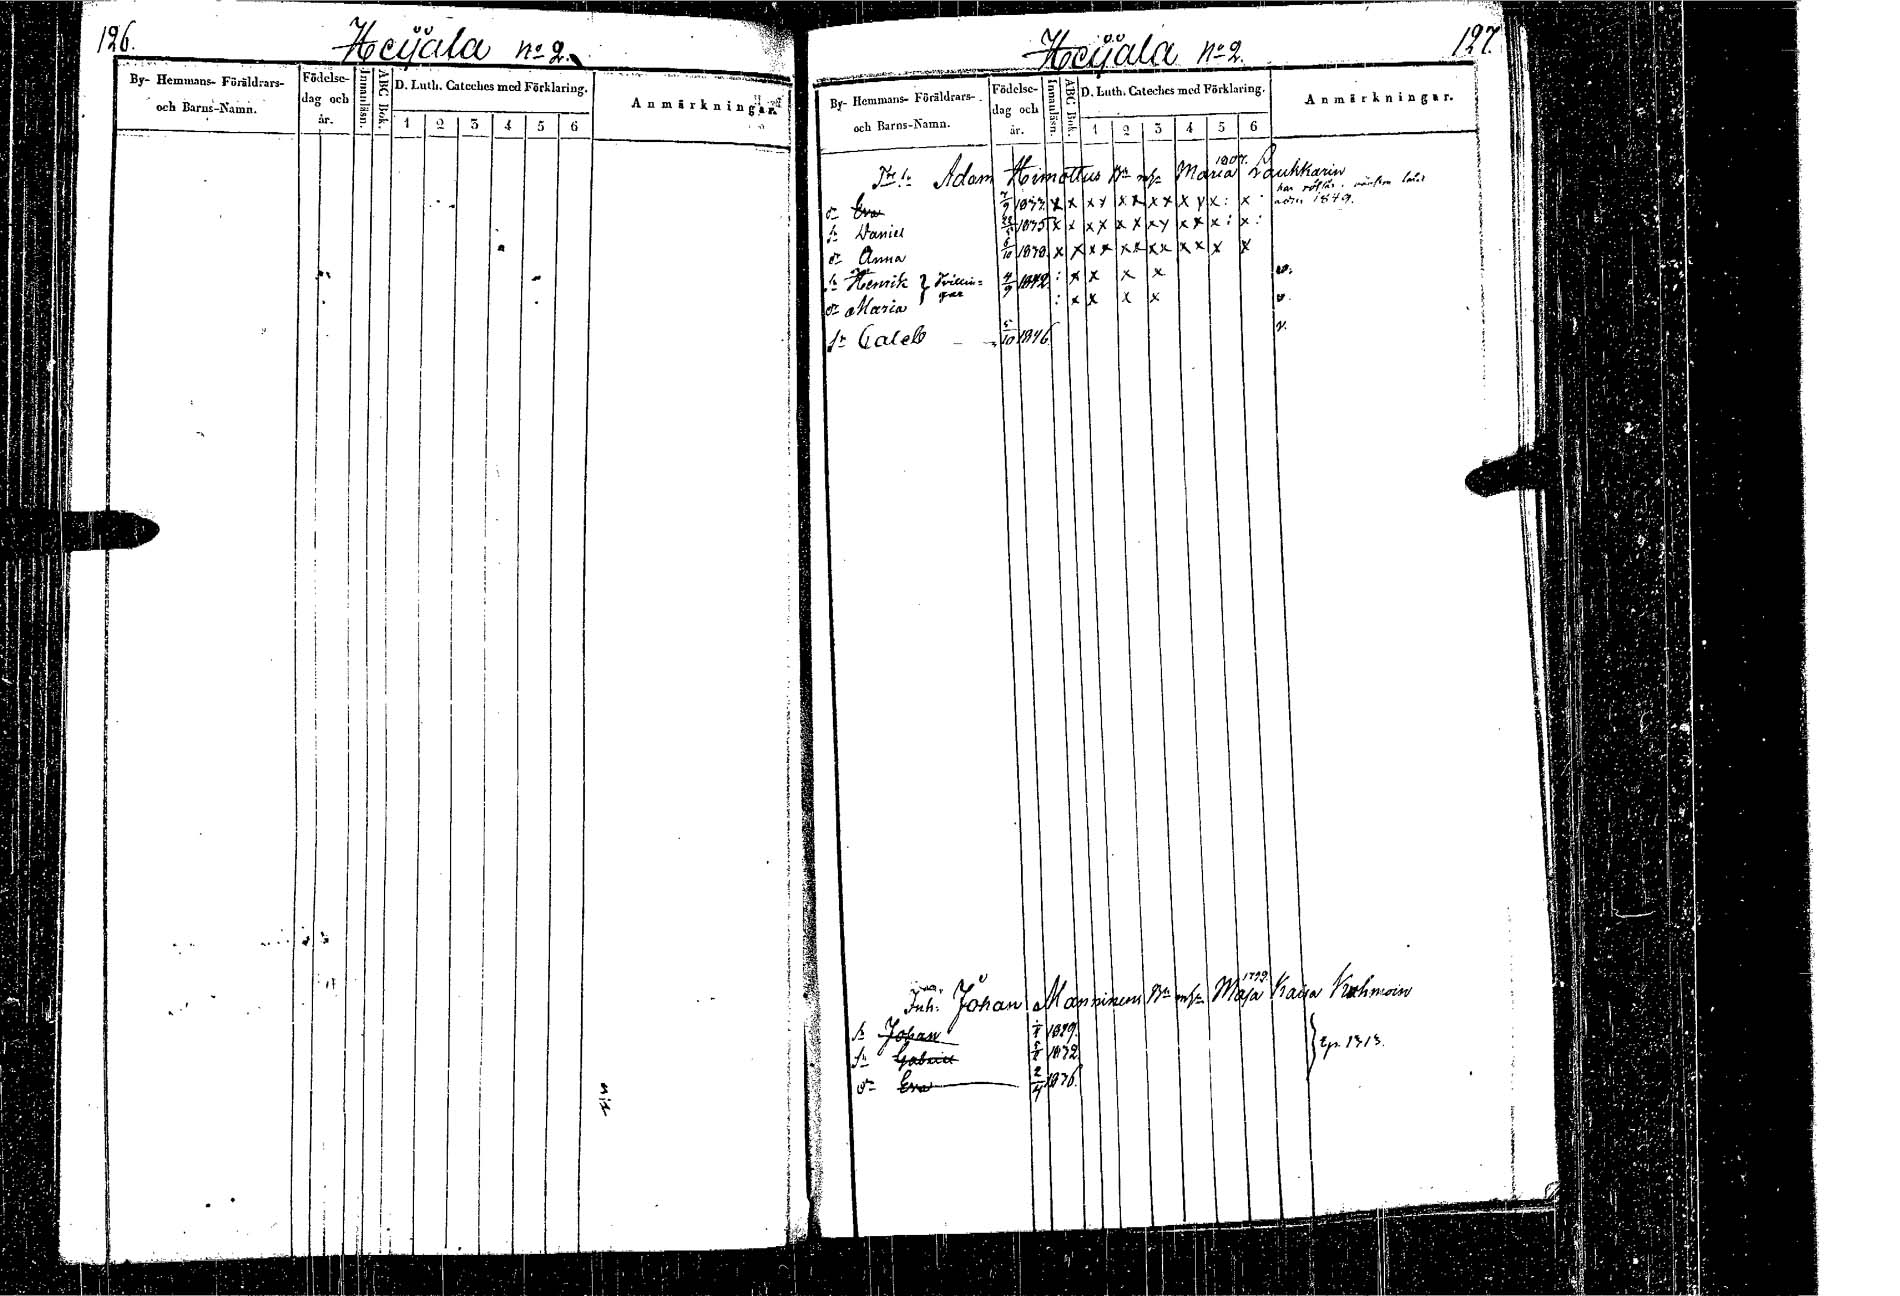 126.
Heÿala No 2.
By- Hemmans- Föräldrars- och Barns-Namn.
Födelse-dag och år.
Innanläsn.
ABC Bok.
D. Luth. Cateches med Förklaring.
1 2 3 4 5 6
Anmärkningar.
127.
Heÿala No 2.
By- Hemmans- Föräldrars- och Barns-Namn.
Födelse-dag och år.
Innanläsn.
ABC Bok.
D. Luth. Cateches med Förklaring.
1 2 3 4 5 6
Anmärkningar.
Adam Himottus Bn m. h. Maria Laukkarin
1807.
dr Eva 7/9 1833. x x x x x x x x x x x : x
adm 1849.
sn Daniel 1835 x x x x x x x x x x x : x :
dr Anna 6/10 1838. x x x x x x x x x x x x
sn Henrik } Tvillin= 4/9 1842 : x x x x v.
dr Maria gar : x x x x v.
sn Caleb 5/10 1846. v.
Inh. Johan Manninens Bn m. h. Maja Kaisa Kuhmoin
1799
sn Johan 1829.
sn Gabriel 1832 } 1313.
dr Eva 2/4 1836.